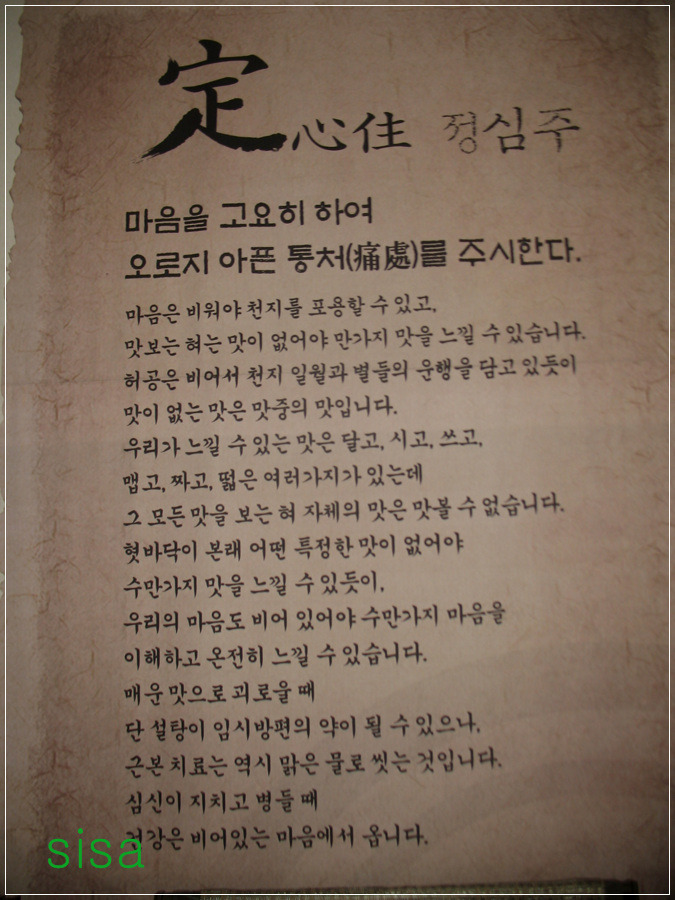 定心住 정심주
마음을 고요히 하여
오로지 아픈 통처(痛處)를 주시한다.
마음은 비워야 천지를 포용할 수 있고,
맛보는 혀는 맛이 없어야 만가지 맛을 느낄 수 있습니다.
허공은 비어서 천지 일월과 별들의 운행을 담고 있듯이
맛이 없는 맛은 맛중의 맛입니다.
우리가 느낄 수 있는 맛은 달고, 시고, 쓰고,
맵고, 짜고, 떫은 여러가지가 있는데
그 모든 맛을 보는 혀 자체의 맛은 맛볼 수 없습니다.
혓바닥이 본래 어떤 특정한 맛이 없어야
수만가지 맛을 느낄 수 있듯이,
우리의 마음도 비어 있어야 수만가지 마음을
이해하고 온전히 느낄 수 있습니다.
매운 맛으로 괴로울 때
단 설탕이 임시방편의 약이 될 수 있으나,
근본 치료는 역시 맑은 물로 씻는 것입니다.
심신이 지치고 병들 때
건강은 비어있는 마음에서 옵니다.
sisa